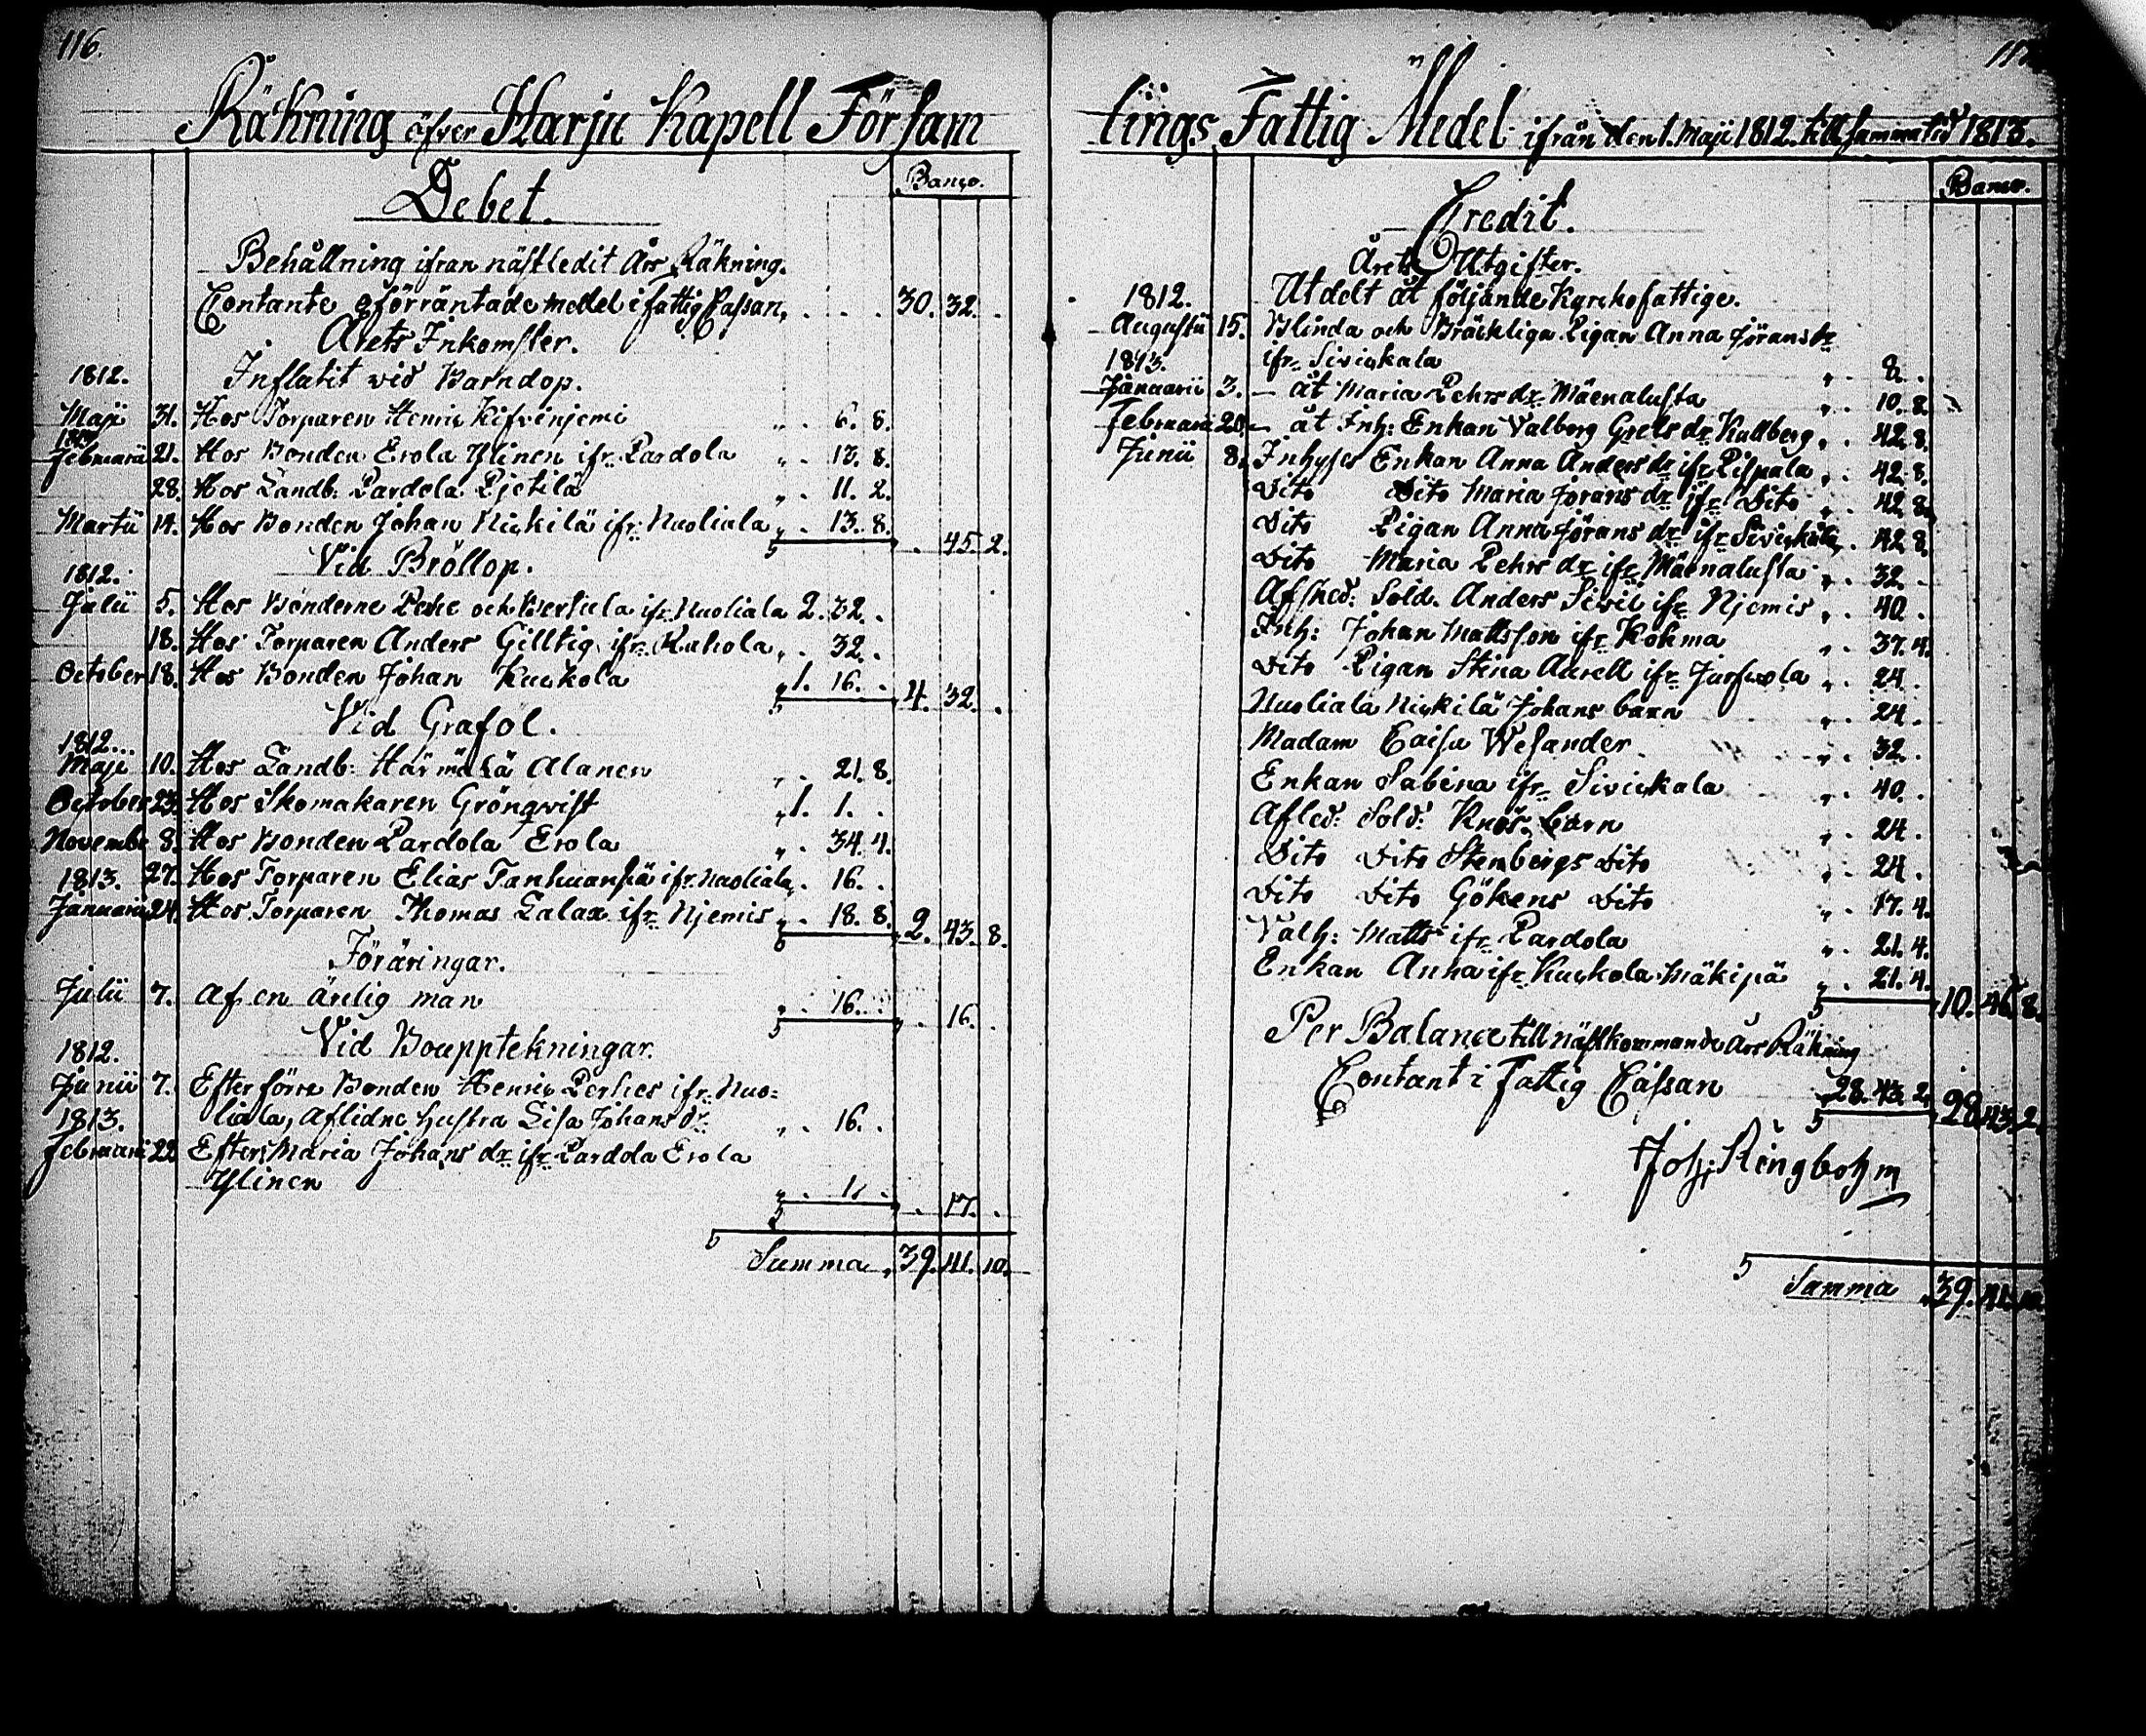 116.
Räkning öfver Harju Kapell Försam
Banco.
Debet.
Behållning ifrån nästledit Års Räkning.
Contante oförräntade medel i fattig Cassan, . . . 30. 32. .
Årets Inkomster.
1812. Influtit vid Barndop.
Maji 31. Hos Torparen Henric Kifvenjemi " . 6. 8.
1813
Februarii 21. Hos Bonden Erola Ylinen ifr. Pardola " . 13. 8.
28. Hos Landb: Pardola Pjetilä " . 11. 2.
Martii 14. Hos Bonden Johan Nickilä ifr: Nuoliala " . 13. 8. . 45. 2.
Vid Bröllop.
1812.
Julii 5. Hos Bönderne och ifr. Nuoliala 2. 32. .
18. Hos Torparen Anders Gilltig ifr. " . 32. .
October 18. Hos Bonden Johan Kuckola " 1. 16. . 4. 32. .
Vid Grafol.
1812...
Maji 10. Hos Landb: Härmälä Alanen " . 21. 8.
October 23. Hos Skomakaren Grönqvist " 1. 1. .
Novembe 8. Hos Bonden Pardola Erola " . 34. 4.
1813. 27. Hos Torparen Elias ifr. Nuoliala " . 16. .
Januarii 24. Hos Torparen Thomas Salax ifr. Njemis " . 18. 8. 2. 43. 8.
Föräringar.
Julii 7. Af en ärelig man " . 16. . . 16. .
Vid Boupptekningar.
1812.
Junii 7. Efter förre Bonden Henric ifr. Nuo=
1813. liala, aflidne hustra Lisa Johans dr. " . 16. .
Februarii 22. Efter Maria Johans dr. ifr. Pardola Erola
Ylinen " . 1. . . 17. .
Summa 39. 41. 10.
lings Fattig Medel ifrån den 1. Maji 1812. till samma tid 1813.
Banco.
Credit.
Årets Utgifter.
1812. Utdelt åt följande Kyrkofattige.
Augustii 15. Blinda och Bräckliga Pigan Anna Jörans dr
1813. ifr. Sivickala " . 8. .
Januarii 3. — åt Maria Pehrs dr. Mäenalusta " . 10. 8.
Februarii 20. — åt Inh: Enkan Valborg Grels dr. Kullberg " . 42. 8.
Junii 8. Inhyses Enkan Anna Anders dr. ifr. Pispala " . 42. 8.
Dito Dito Maria Jörans dr. ifr. Dito " . 42. 8.
Dito Pigan Anna Jörans dr. ifr. Sivickala " . 42. 8.
Dito Maria Pehrs dr. ifr. Mäenalusta " . 32. .
Afsked: Sold. Anders ifr. Njemis " . 40. .
Inh: Johan Mattsson ifr. Kohma " . 37. 4.
Dito Pigan Stina Aurell ifr. " . 24. .
Nuoliala Nickilä Johans barn " . 24. .
Madam Caisa Wesander " . 32. .
Enkan Sabina ifr. Sivickala " . 40. .
Afled: Sold: Knös. barn " . 24. .
Dito Dito Stenbergs Dito " . 24. .
Dito Dito Gökens Dito " . 17. 4.
Valh: Matts ifr. Pardola " . 21. 4.
Enkan Anna ifr. Kuckola Mäkipä " . 21. 4. 10. 46. 8.
Per Balance till nästkommande Års Räkning
Contant i Fattig Cassan 28. 43. 2. 28. 43. 2.
Joh: Ringbohm
Summa 39. 41. 10